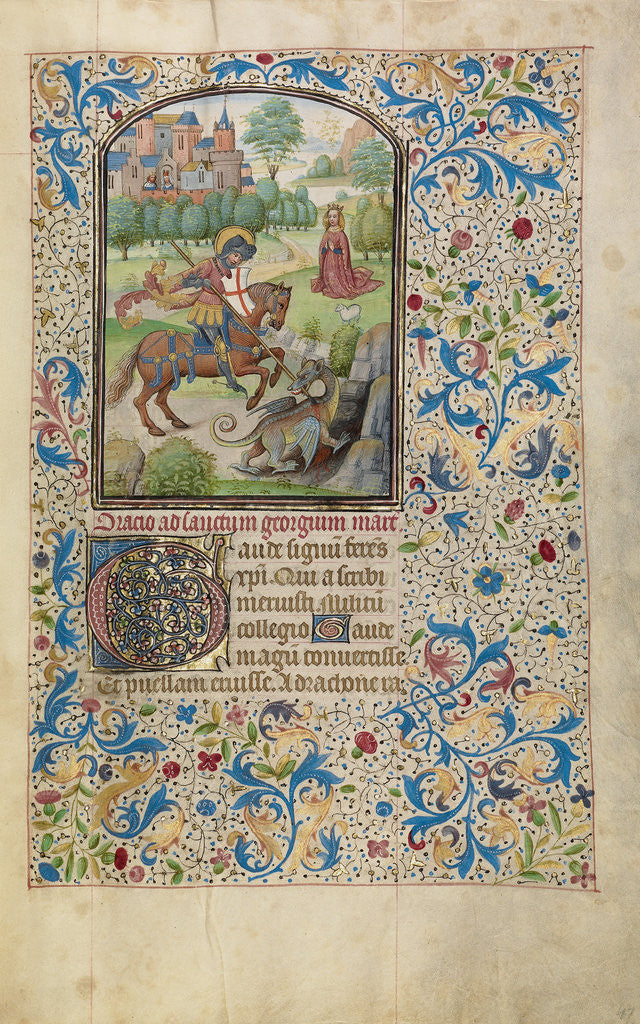 Oracio ad sanctum georgium mart.
Gaude signum ferens
xpi. Qui ascribi
meruisti. Militum
collegio Gaude
magum convertisse
Et puellam eruisse. A dracone ra